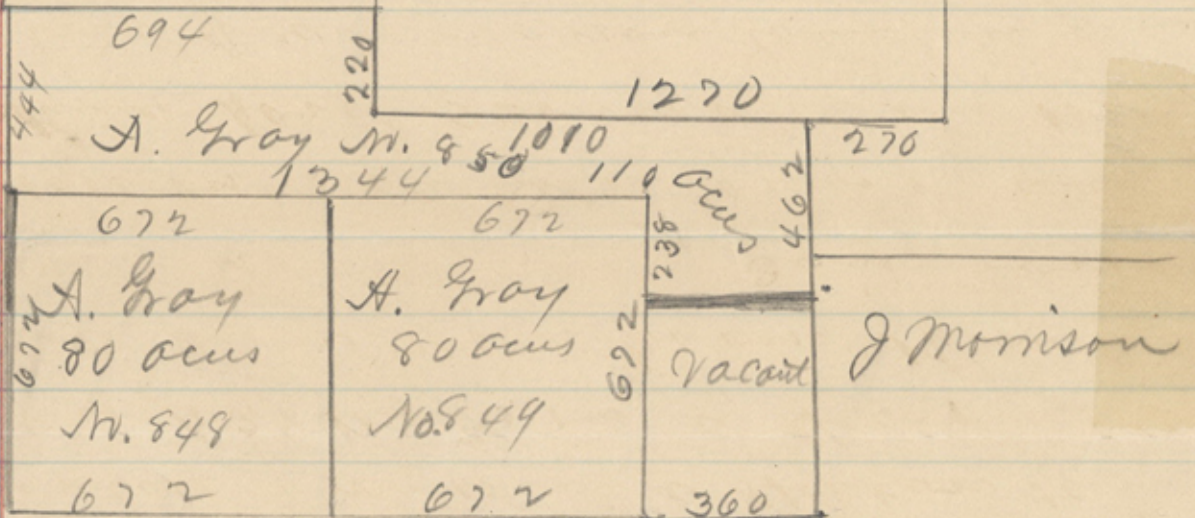 694
444
220
1270
A. Gray No. 850 1010
270
1344 110 acres
462
238
672
672
A. Gray
80 acres
No. 848
672
672
A. Gray
80 acres
No. 849
672
672
Vacant
360
J Morrison